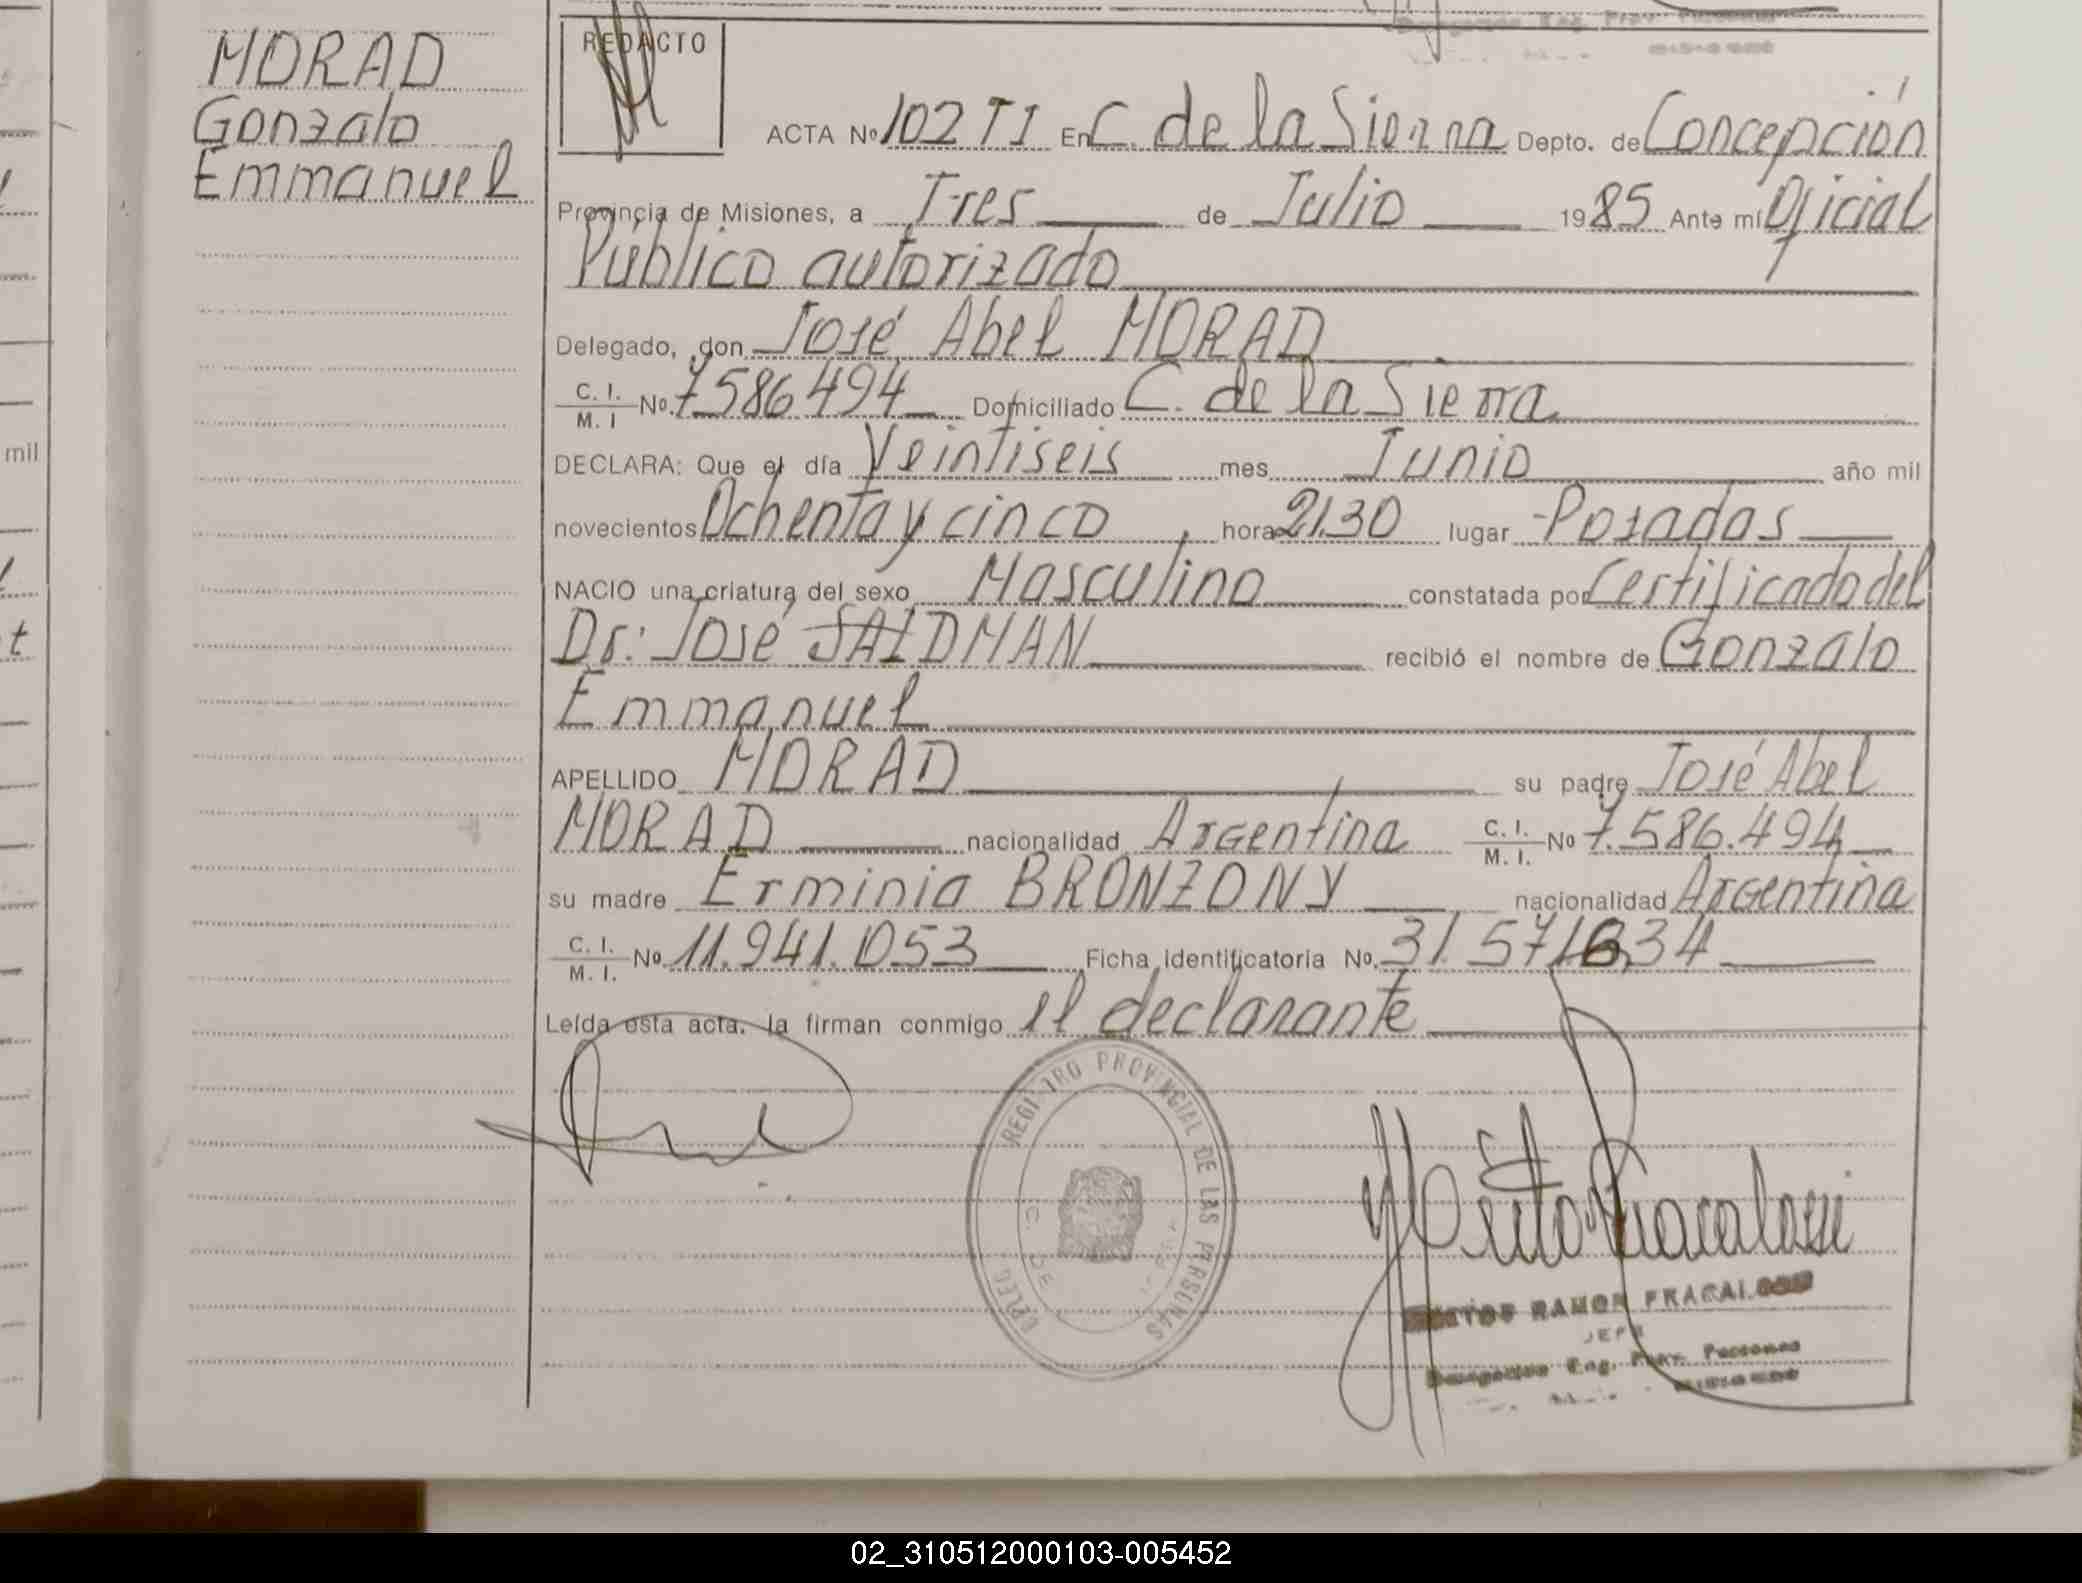 MORAD
Gonzalo
Emmanuel
REDACTO
ACTA Nº 102 TI En C. de la Sierra Depto. de Concepción
Provincia de Misiones, a Tres de Julio 1985 Ante mí Oficial
Público autorizado
Delegado, don José Abel MORAD
C. I. M. I Nº. 7586494 Domiciliado C. de la Sierra
DECLARA: Que el día Veintiseis mes Junio año mil
novecientos Ochenta y cinco hora 21.30 lugar Posadas
NACIO una criatura del sexo Masculino constatada por Certificado del
Dr: José SAIDMAN recibió el nombre de Gonzalo
Emmanuel
APELLIDO MORAD su padre José Abel
MORAD nacionalidad Argentina C. I. M. I. Nº 7.586.494
su madre Erminia BRONZONY nacionalidad Argentina
C. I. M. I. Nº. 11.941.053 Ficha identificatoria No. 31.571.634
Leída esta acta, la firman conmigo el declarante
REGISTRO PROVINCIAL DE LAS PERSONAS
C. DE
RAMON FRACALOSSI
JEFE
Personas
mil
t
02_310512000103-005452